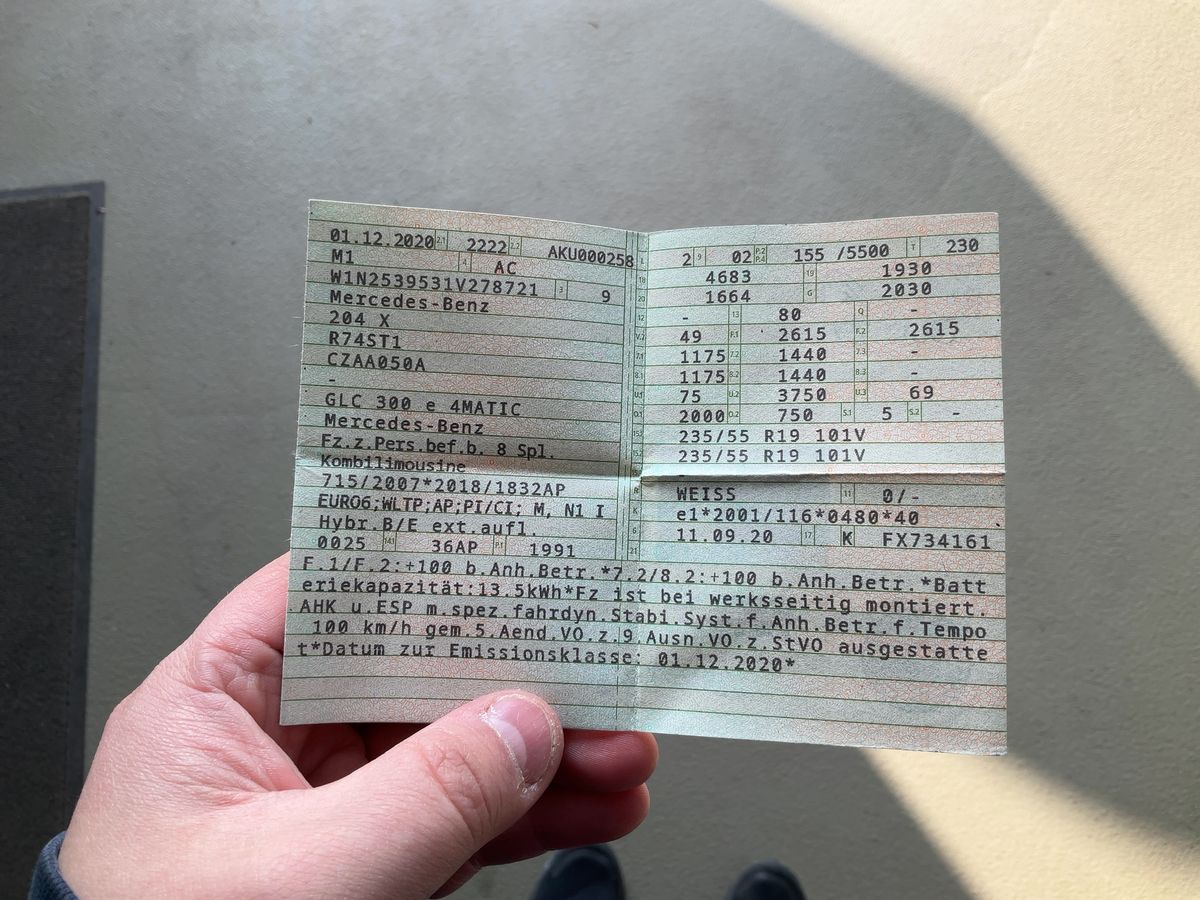 01.12.2020 2.1 2222 2.2 AKU000258
M1 4 AC
W1N2539531V278721 3 9
Mercedes-Benz
204 X
R74ST1
CZAA050A
-
GLC 300 e 4MATIC
Mercedes-Benz
Fz.z.Pers.bef.b. 8 Spl.
Kombilimousine
715/2007*2018/1832AP
EURO6;WLTP;AP;PI/CI; M, N1 I
Hybr.B/E ext.aufl.
0025 14.1 36AP P.1 1991
L 2 9 02 P.2 P.4 155 /5500 T 230
18 4683 19 1930
20 1664 G 2030
12 - 13 80 Q -
V.7 49 F.1 2615 F.2 2615
7.1 1175 7.2 1440 7.3 -
8.1 1175 8.2 1440 8.3 -
U.1 75 U.2 3750 U.3 69
O.1 2000 O.2 750 S.1 5 S.2 -
15.1 235/55 R19 101V
15.2 235/55 R19 101V
-
R WEISS 11 0/-
K e1*2001/116*0480*40
6 11.09.20 17 K FX734161
21
F.1/F.2:+100 b.Anh.Betr.*7.2/8.2:+100 b.Anh.Betr.*Batt
eriekapazität:13.5kWh*Fz ist bei werksseitig montiert.
AHK u.ESP m.spez.fahrdyn.Stabi.Syst.f.Anh.Betr.f.Tempo
100 km/h gem.5.Aend.VO.z.9 Ausn.VO.z.StVO ausgestatte
t*Datum zur Emissionsklasse: 01.12.2020*